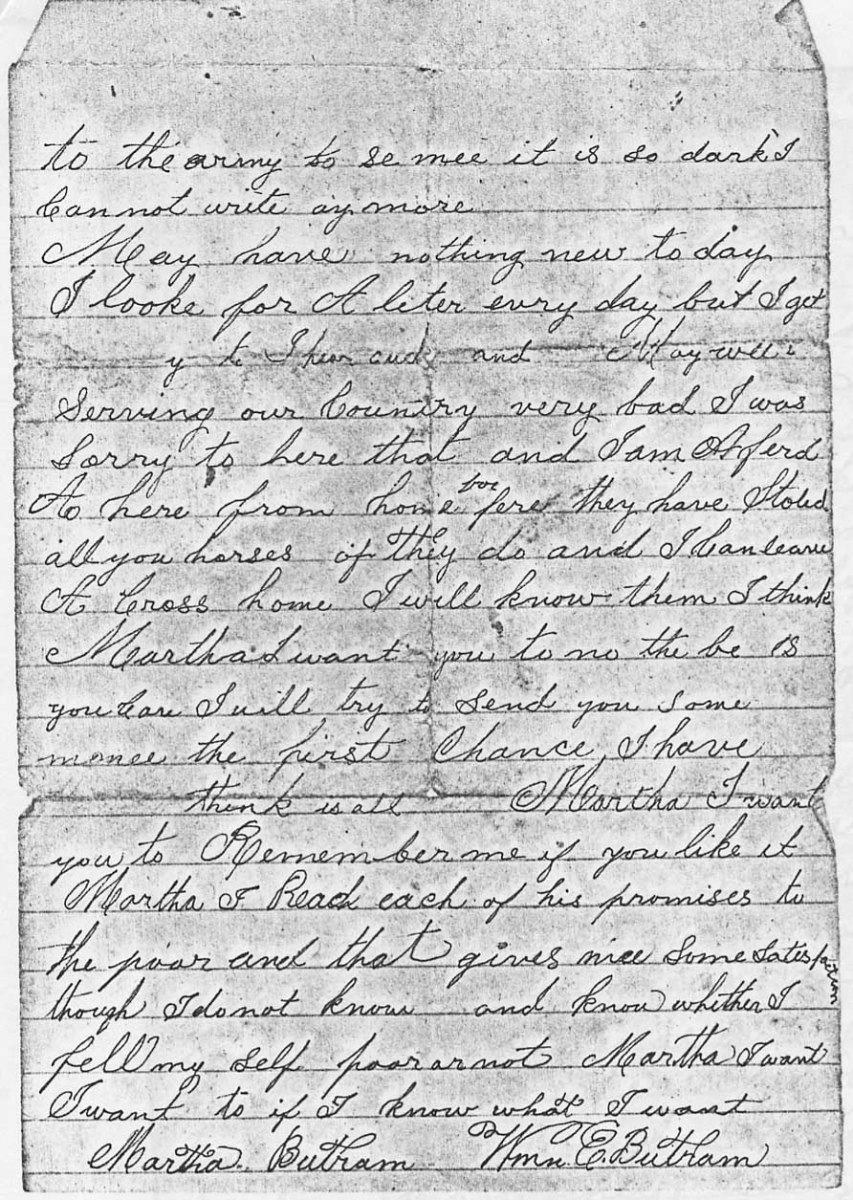 to the army to se mee it is so dark I
Can not write ay more
May have nothing new to day
I looke for A leter evry day but I get
y to I hear and May well
Serving our Country very bad I was
Sorry to here that and I am Aferd
to here from home bee fere they have Stoled
all you horses if they do and I Can leave
A Cross home I will know them I think
Martha I want you to no the be is
you Can I will try to send you some
monee the first Chance I have
think is all Martha I want
you to Remember me if you like it
Martha I Read each of his promises to
the poor and that gives mee some satisfaction
though I do not know and know whether I
fell my self poor or not Martha I want
I want to if I know what I want
Martha Butram Wmn. E. Butram